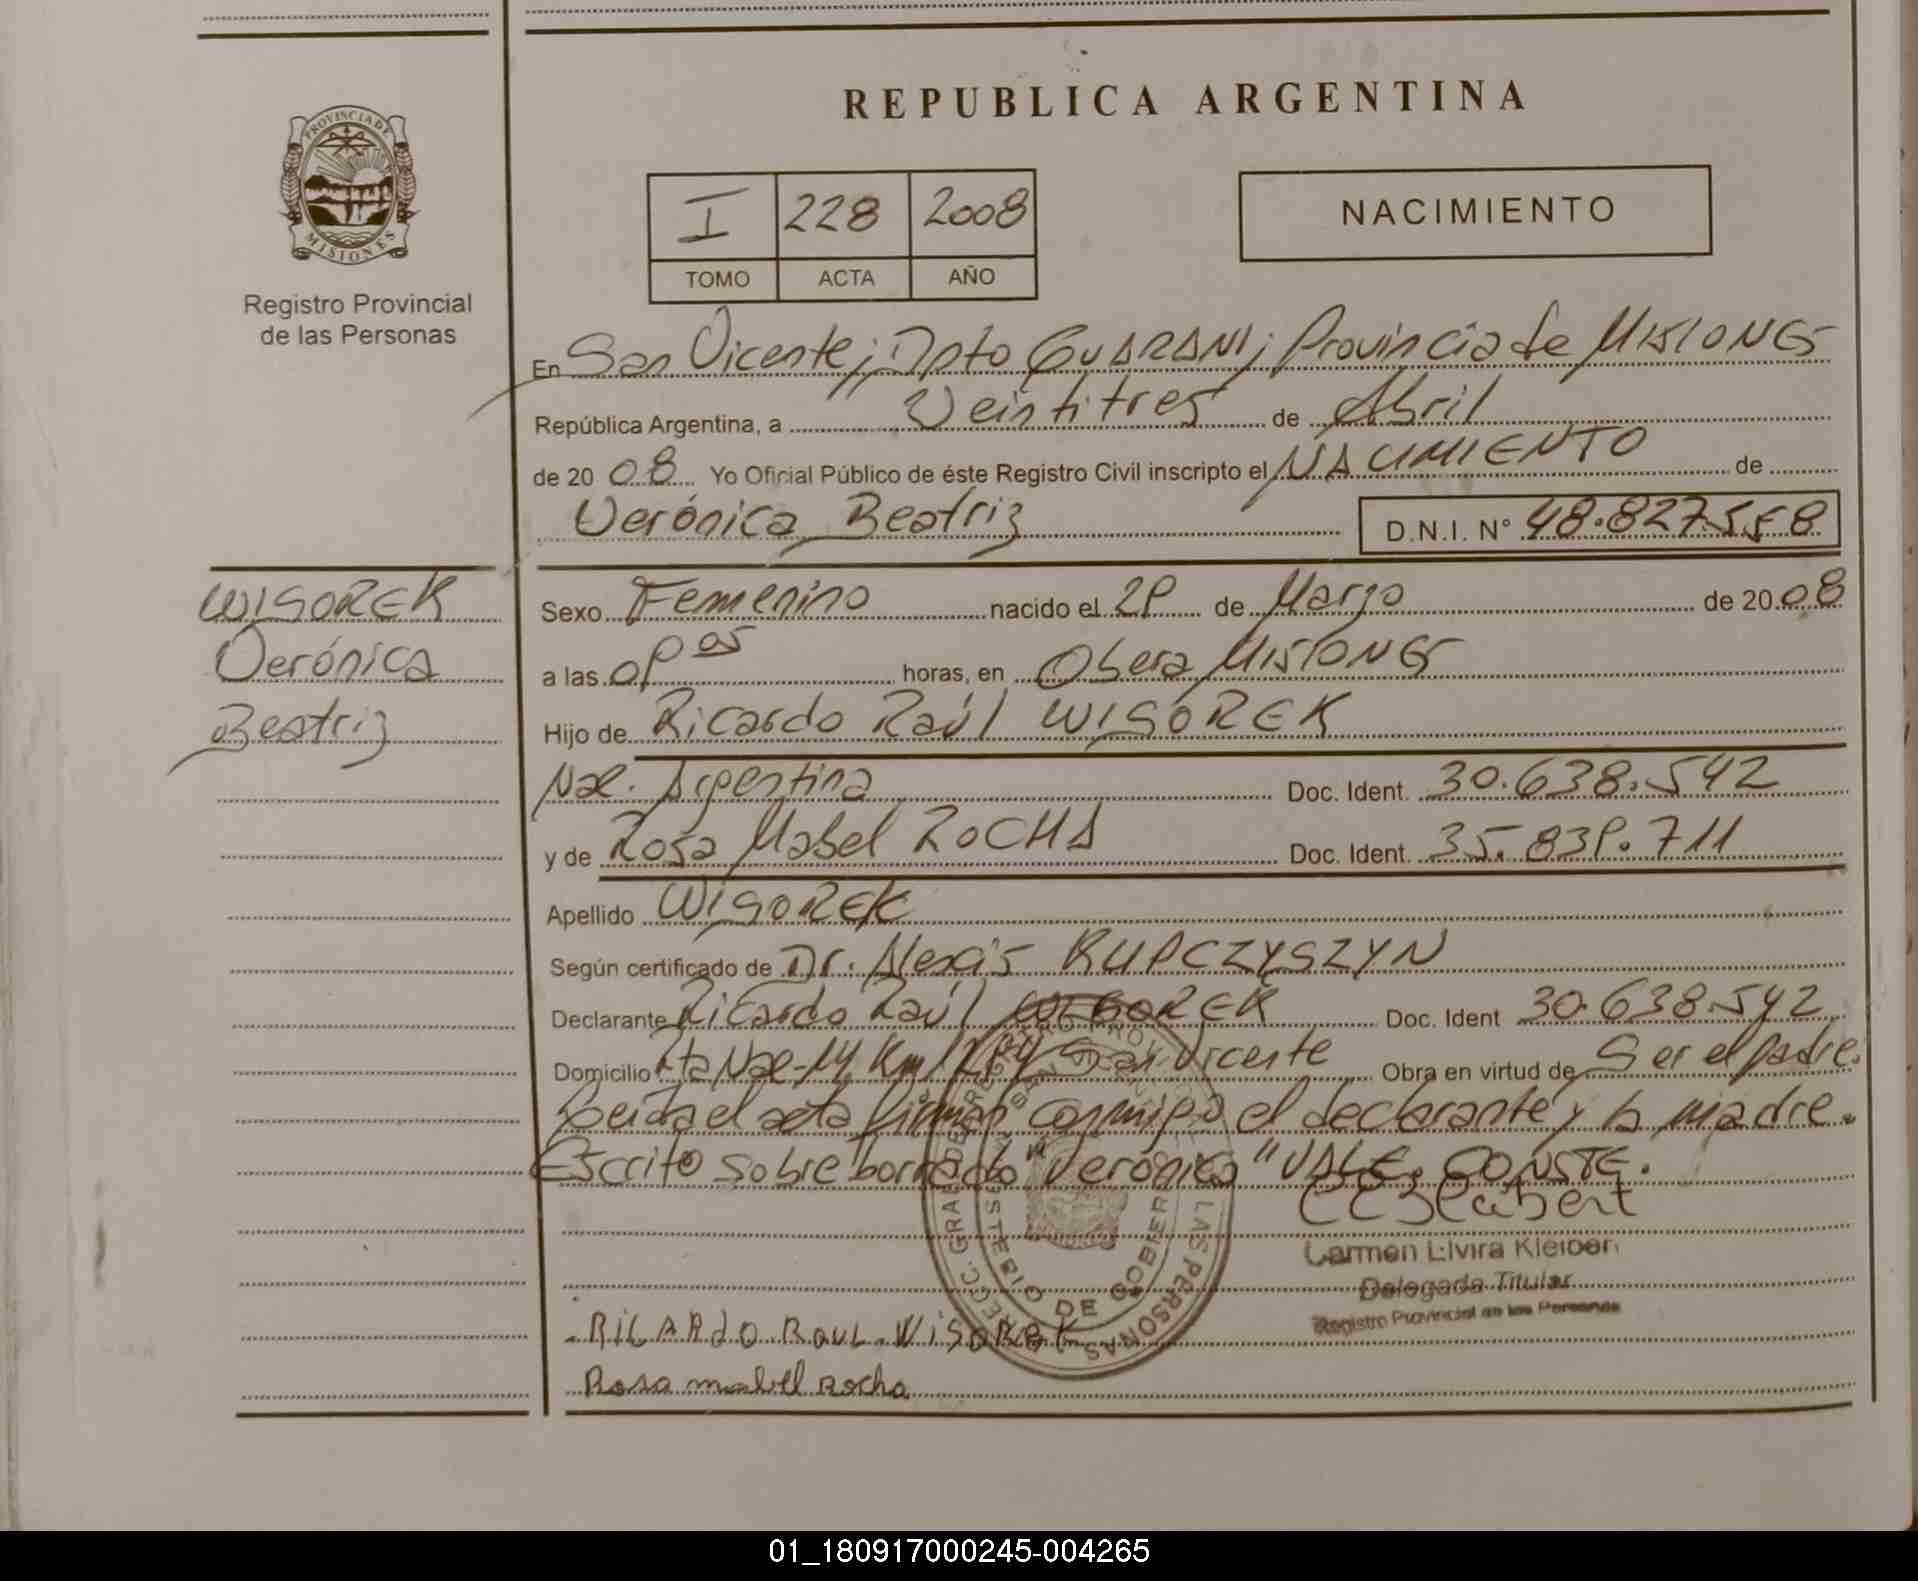 PROVINCIA DE
MISIONES
Registro Provincial
de las Personas
WISOREK
Verónica
Beatriz
REPUBLICA ARGENTINA
I 228 2008
TOMO ACTA AÑO
NACIMIENTO
En San Vicente; Dpto GUARANI; Provincia de MISIONES
República Argentina, a Veintitres de Abril
de 20 08 Yo Oficial Público de éste Registro Civil inscripto el NACIMIENTO de
Verónica Beatriz D.N.I. N° 48.827.558
Sexo Femenino nacido el 29 de Marzo de 20 08
a las 09 05 horas, en Obera MISIONES
Hijo de Ricardo Raúl WISOREK
Nac. Argentina Doc. Ident. 30.638.542
y de Rosa Mabel ROCHA Doc. Ident. 35.839.711
Apellido WISOREK
Según certificado de Dr. Alexis KUPCZYSZYN
Declarante Ricardo Raúl WISOREK Doc. Ident 30.638.542
Domicilio Rta Nac-14 Km San Vicente Obra en virtud de Ser el padre.
Leida el acta firman conmigo el declarante y la madre.
Escrito sobre borrado "Verónica" VALE. CONSTE.
Carmen Elvira Kleiber
Delegada Titular
Registro Provincial de las Personas
RICARDO RAUL WISOREK
Rosa mabel Rocha
01_180917000245-004265